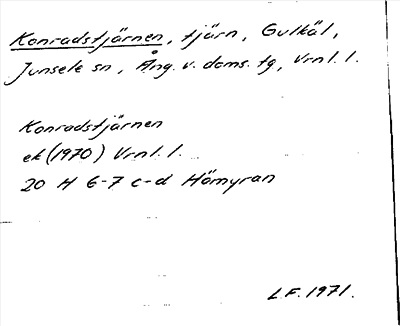 Konradstjärnen, tjärn, Gulkäl,
Junsele sn, Ång. v. doms. tg, Vrnl. l.
Konradstjärnen
ek (1970) Vrnl. l.
20 H 6-7 c-d Hömyran
L.F. 1971.